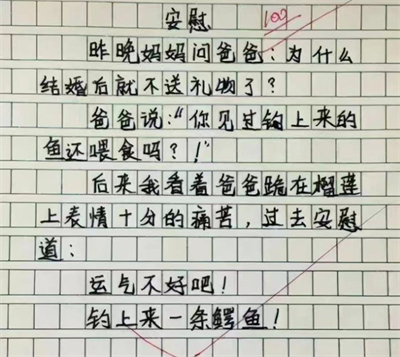 安慰
100
昨晚妈妈问爸爸：为什么
结婚后就不送礼物了？
爸爸说："你见过钩上来的
鱼还喂食吗？！"
后来我看着爸爸跪在榴莲
上表情十分的痛苦，过去安慰
道：
运气不好吧！
钓上来一条鳄鱼！